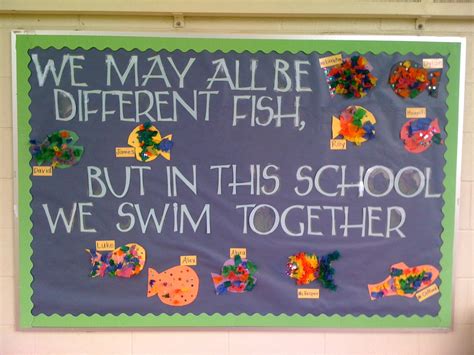 WE MAY ALL BE
DIFFERENT FISH,
BUT IN THIS SCHOOL
WE SWIM TOGETHER
David
James
Riley
Luke
Alex